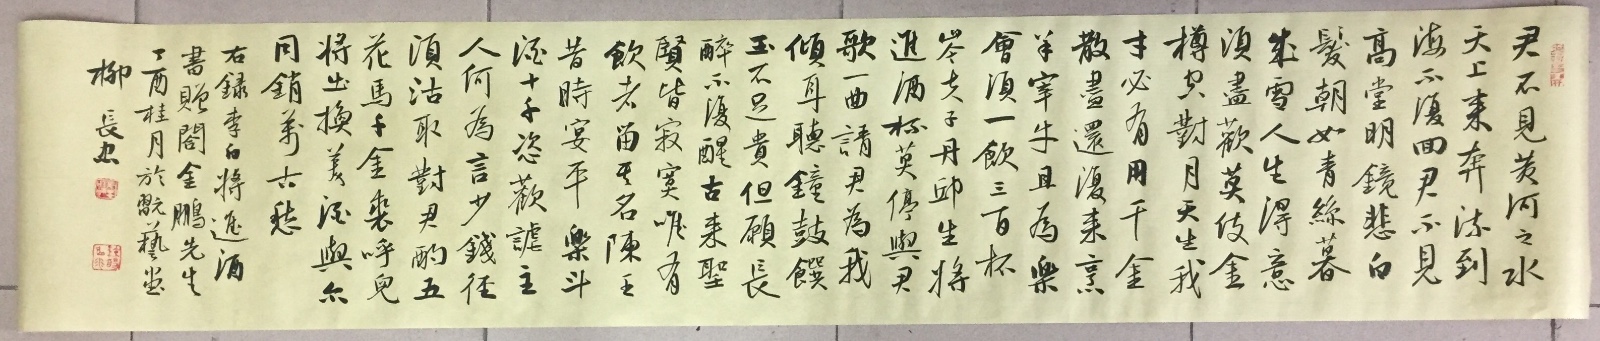 君不見黃河之水
天上来奔流到
海不復回君不見
高堂明鏡悲白
髮朝如青絲暮
成雪人生得意
須盡歡莫使金
樽空對月天生我
才必有用千金
散盡還復来烹
羊宰牛且為樂
會須一飲三百杯
岑夫子丹邱生將
進酒杯莫停與君
歌一曲請君為我
傾耳聽鐘鼓饌
玉不足貴但願長
醉不復醒古来聖
賢皆寂寞唯有
飲者留其名陳王
昔時宴平樂斗
酒十千恣歡謔主
人何為言少錢徑
須沽取對君酌五
花馬千金裘呼兒
將出換美酒與尔
同銷萬古愁
右錄李白將進酒
書贈閻金鵬先生
丁酉桂月於翫藝堂
柳長忠